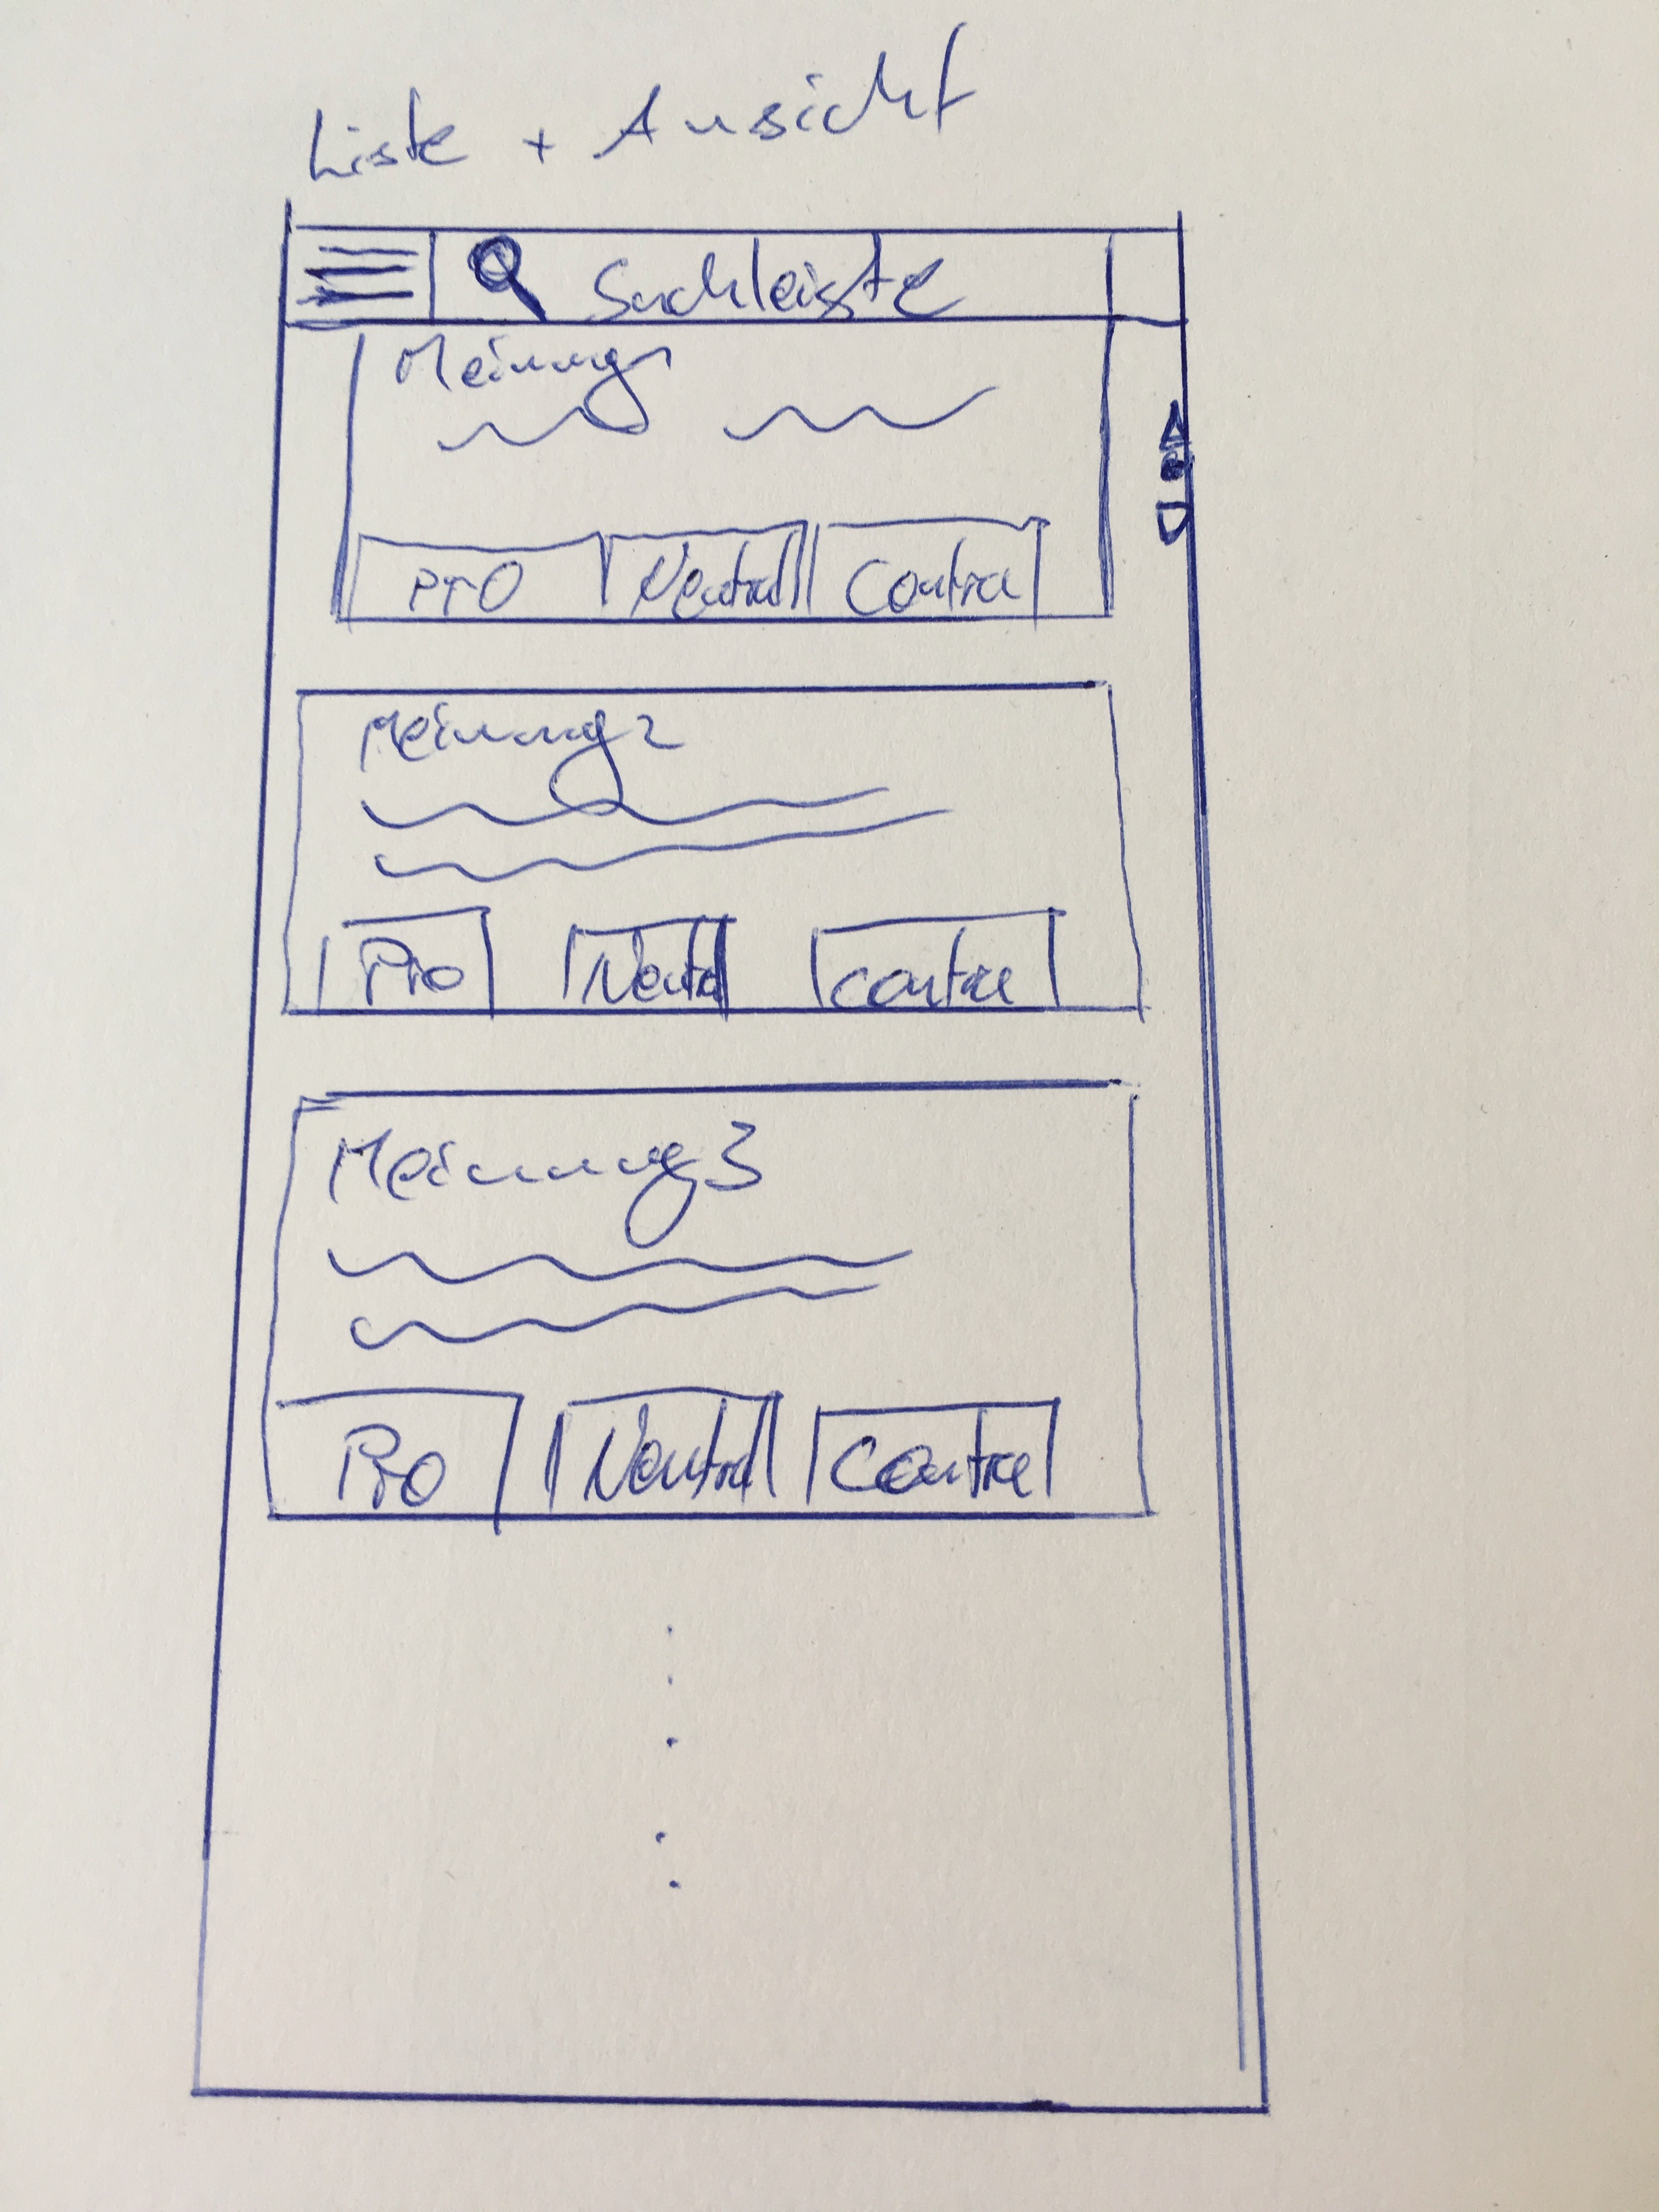 Liste + Ansicht
Suchleiste
Meinung 1
Pro Neutral Contra
Meinung 2
Pro Neutral contra
Meinung 3
Pro Neutral Contra